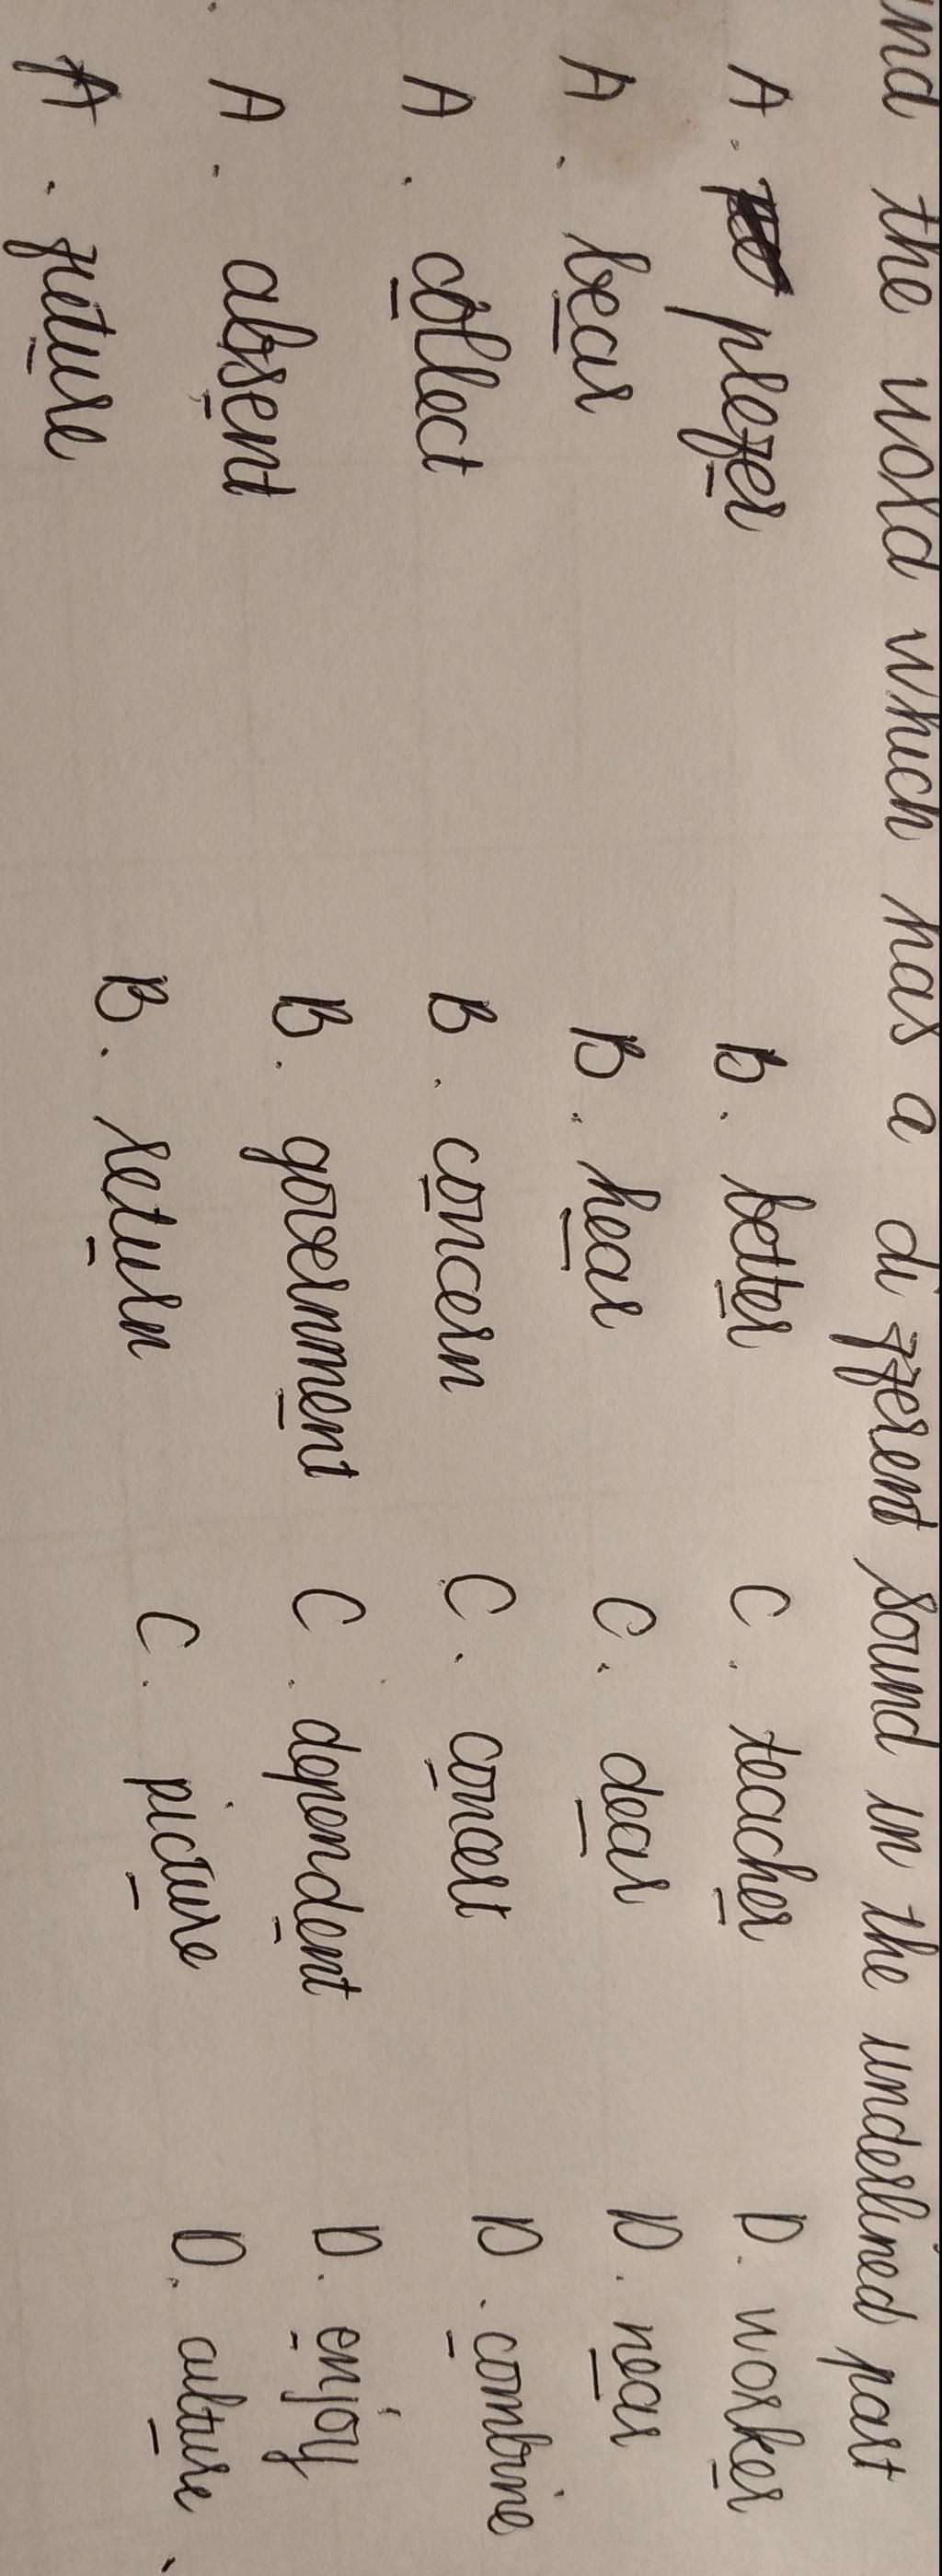 ind the word which has a different sound in the underlined part
A. prefer B. better C. teacher D. worker
A. bear B. hear C. dear D. near
A. collect B. concern C. concert D. combine
A. absent B. government C. dependent D. enjoy
A. future B. return C. picture D. culture